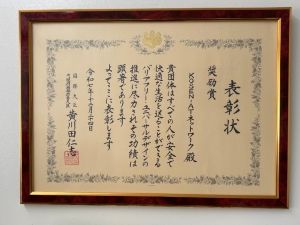 表彰状
奨励賞
KOSEN-ATネットワーク殿
貴団体はすべての人が安全で
快適な生活を送ることができる
バリアフリー・ユニバーサルデザインの
推進に尽力されその功績は
顕著であります
よってここに表彰します
令和七年十二月二十四日
国務大臣
黄川田仁志